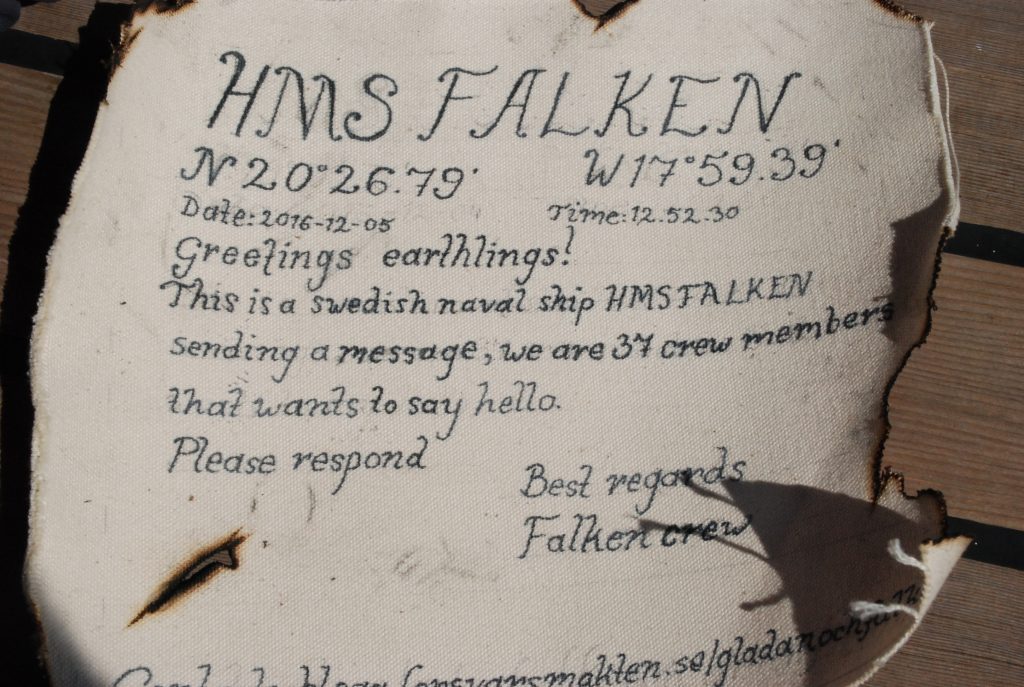 HMS FALKEN
N 20°26.79' W 17°59.39'
Date: 2016-12-05 Time: 12.52.30
Greetings earthlings!
This is a swedish naval ship HMS FALKEN
sending a message, we are 37 crew members
that wants to say hello.
Please respond
Best regards
Falken crew
forsvarsmakten.se/gladanochfalken